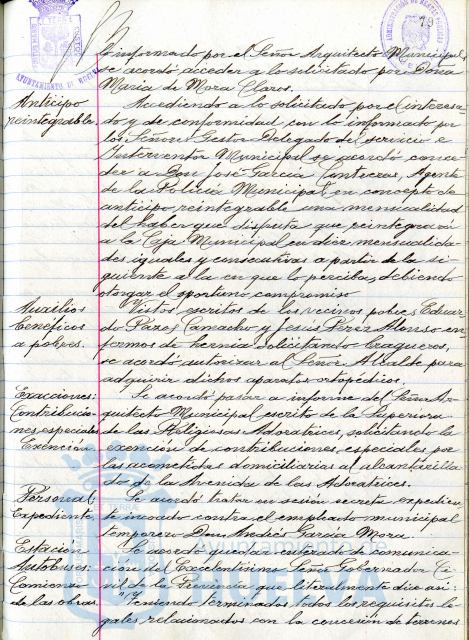 lo informado por el Señor Arquitecto Municipal,
se acordó acceder a lo solicitado por Doña
Maria de Mora Claros.
Anticipo
reintegrable
Accediendo a lo solicitado por el interesa-
do y de conformidad con lo informado por
los Señores Gestor Delegado del servicio e
Interventor Municipal se acordó conce-
der a Don José Garcia Contreras, Agente
de la Policia Municipal, en concepto de
anticipo reintegrable una mensualidad
del haber que disfruta que reintegrará
a la Caja Municipal en diez mensualida-
des iguales y consecutivas a partir de la si-
guiente a la en que lo perciba, debiendo
otorgar el oportuno compromiso
Auxilios
beneficos
a pobres.
Vistos escritos de los vecinos pobres Eduar-
do Camacho y Jesús Pérez Alonso en-
fermos de hernia solicitando bragueros,
se acordó autorizar al Señor Alcalde para
adquirir dichos aparatos ortopedicos.
Exacciones:
Contribucio-
nes especiales
Exención.
Se acordó pasar a informe del Señor Ar-
quitecto Municipal escrito de la Superiora
de las Religiosas Adoratrices, solicitando la
exención de contribuciones especiales por
las acometidas domiciliarias al alcantarilla-
do de la Avenida de las Adoratrices.
Personal;
Expediente,
Se acordó tratar en sesión secreta expedien-
te incoado contra el empleado municipal
temporero Don Andrés Garcia Mora.
Estación
Autobuses:
Comienzo
de las obras.
Se acordó quedar enterado de comunica-
ción del Excelentisimo Señor Gobernador Ci-
vil de la Provincia que literalmente dice asi:
"Teniendo terminados todos los requisitos le-
gales relacionados con la concesión de terrenos
AYUNTAMIENTO DE HUELVA
19
Ayuntamiento de
HUELVA